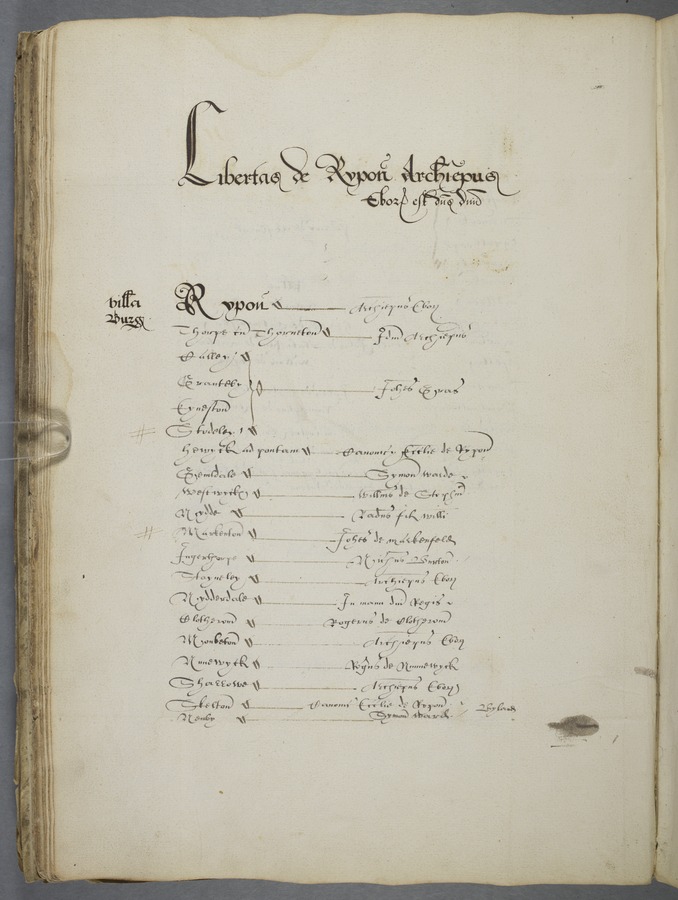 Libertas de Rypon Archiepus
Ebor est dns dm
villa
Burg
Rypon Archiepus Ebor
Thorpe cu Thorneton Idm Archiepus
Granteley Johes Gras
Eyneston
Stodeley
hewyck ad pontem Canonici Ecclie de Rypon
Gyveldale Symon Warde
Westwyck Willms de
Nydde Radus fil willi
Markenton Johes de Markenfeld
Ingerthorpe
Stayneley Archiepus Ebor
Nydderdale In manu dni Regis
Clotherom Rogerus de Clotherom
Monketon Archiepus Ebor
Nunewyck de Nunnewyck
Sharrowe Archiepus Ebor
Skelton Canonici Ecclie de Rypon
Newby Symon Warde